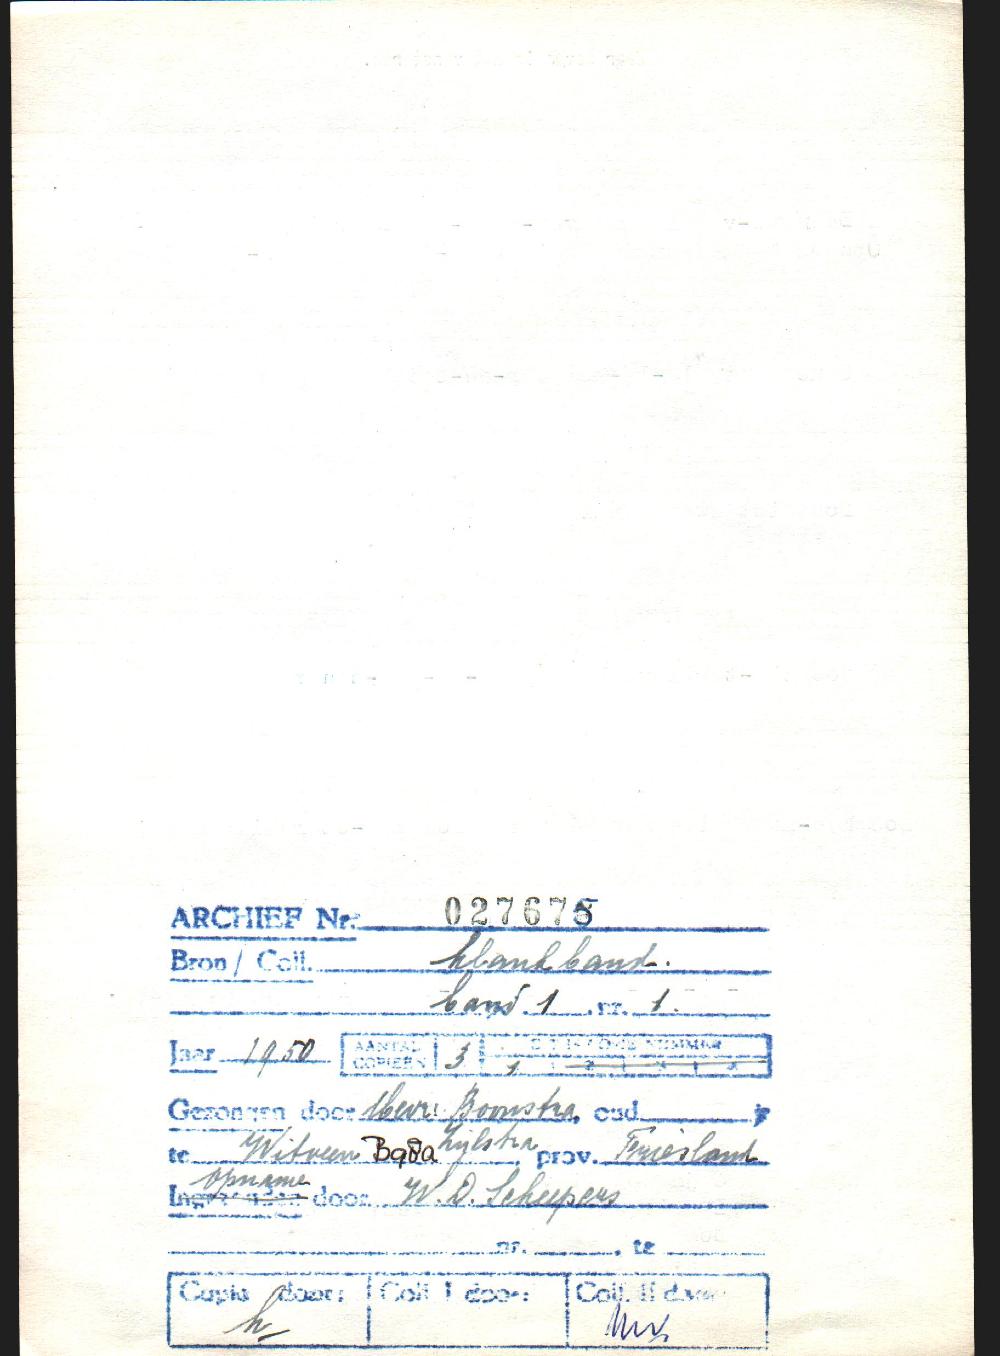 ARCHIEF Nr. 027675
Bron / Coll. klankband.
band 1 nr. 1.
Jaar 1950 AANTAL COPIEEN 3 NUMMER
Gezongen door Boonstra, oud jr
te Witveen B98a Zijlstra, prov. Friesland
Opname
door W. D. Scheepers
nr. , te
Copie door: Coll I door: Coll. II door